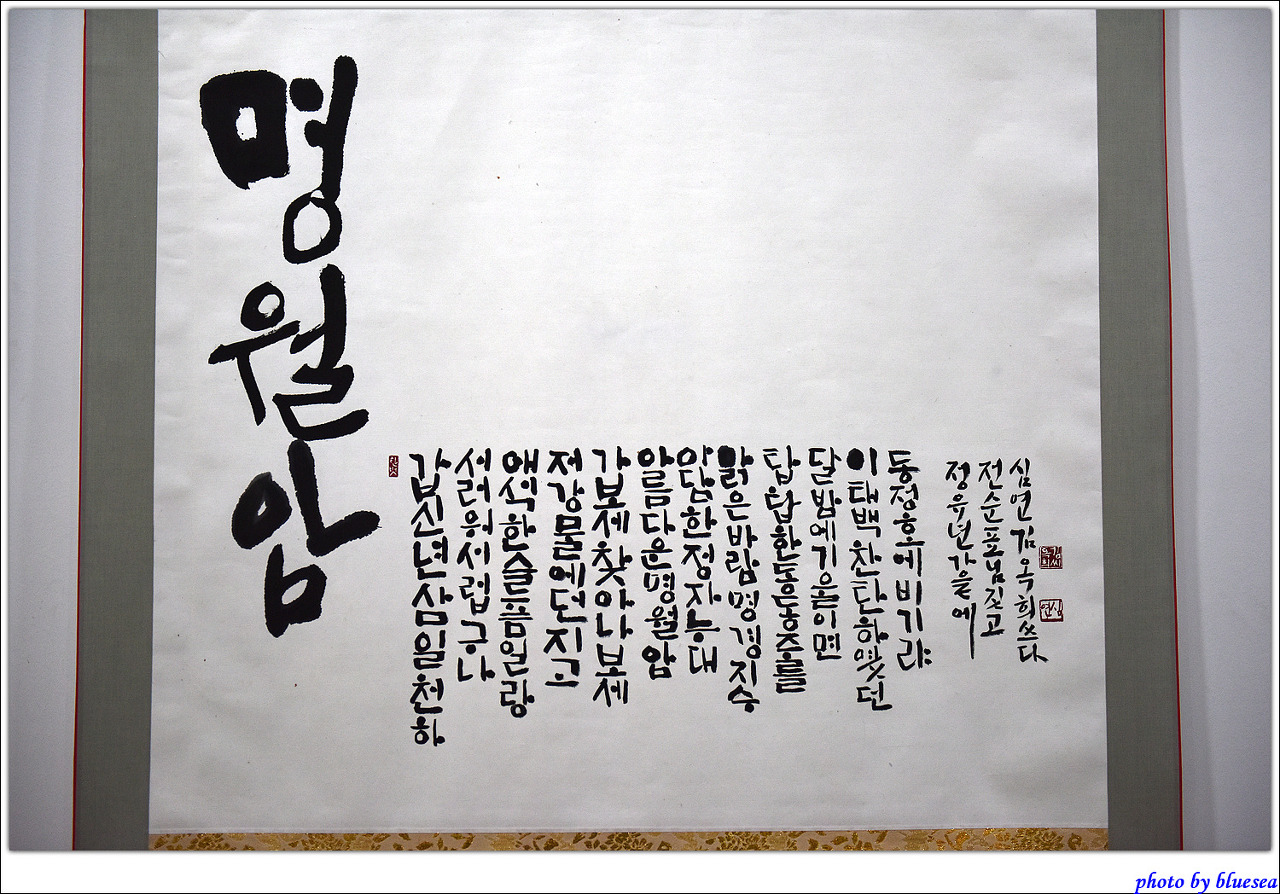 명월암
갑신년삼일천하
서러워서럽구나
애석한슬픔일랑
저강물에던지고
가보세찾아나보세
알름다운명월암
아담한정자능대
맑은바람명경지승
탑탑한동동주를
달밤에기울이면
이태백찬탄하얏던
동정호에비기랴
정유년가을에
전순표님짓고
심연김옥희쓰다
심연
photo by bluesea